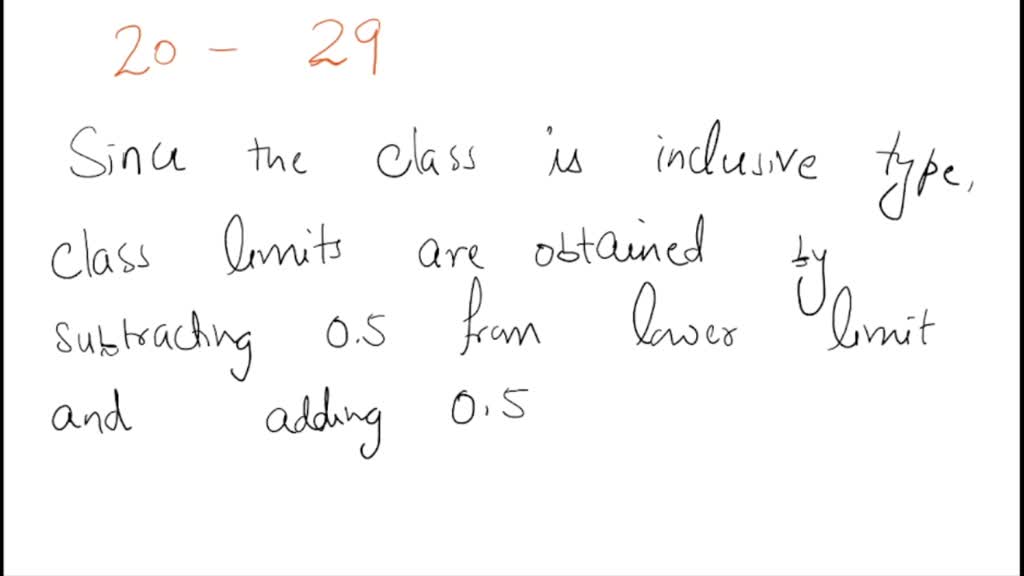 20 - 29
Since the class is inclusive type,
class limits are obtained by
subtracting 0.5 from lower limit
and adding 0.5